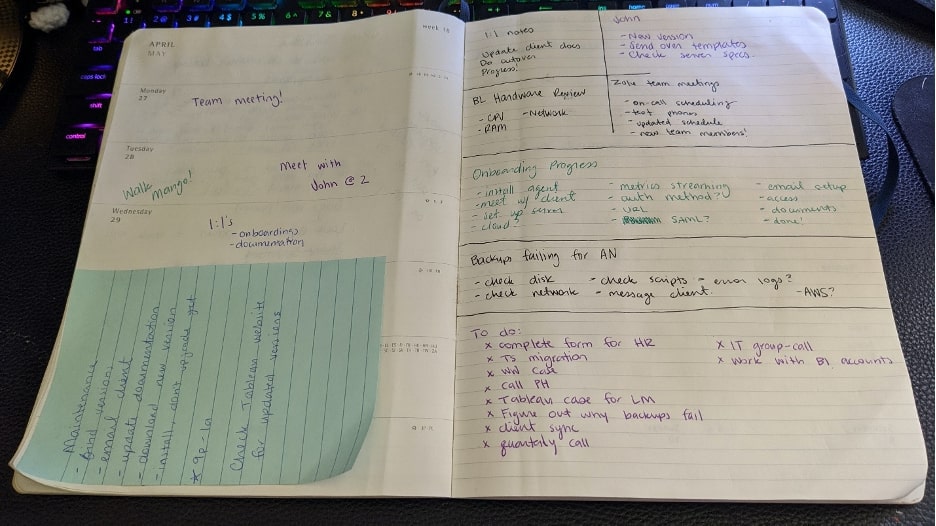 APRIL
MAY
week 18
Monday
27
Team meeting!
Tuesday
28
Walk mango!
Meet with
John @ 2
Wednesday
29
1:1's
- onboardings
- documentation
Maintenance
- find version
- email client
- update documentation
- download new version
- install, don't upgrade yet
* 9p-1a
Check Tableau website
for updated versions
APR
1:1 notes
Update client docs
Do autover
Progress!
John
- New version
- Send over templates
- Check server specs.
BL Hardware Review
- CPU - Network
- RAM
Zone team meetings
- on-call scheduling
- test phones
- updated schedule
- new team members!
Onboarding Progress
- install agent
- meet w/ client
- set up
- cloud?
- metrics streaming
- auth method?
- URL
- SAML?
- email setup
- access
- documents
- done!
Backups failing for AN
- check disk - check scripts - error logs?
- check network - message client. - AWS?
To do:
x complete form for HR
x TS migration
x WW case
x call PH
x Tableau case for LM
x Figure out why backups fail
x client sync
x quarterly call
x IT group-call
x Work with BL accounts